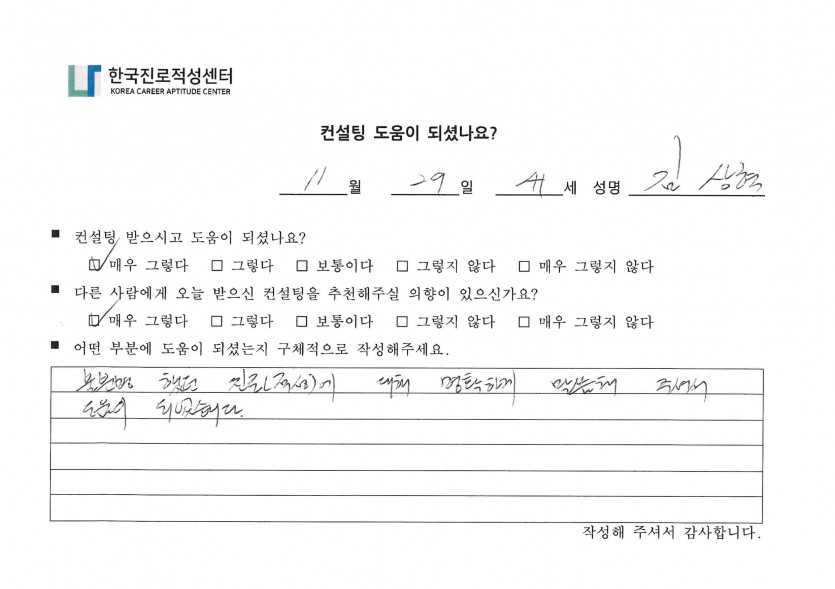 한국진로적성센터
KOREA CAREER APTITUDE CENTER
컨설팅 도움이 되셨나요?
11 월 29 일 41 세 성명 김 상현
■ 컨설팅 받으시고 도움이 되셨나요?
☑ 매우 그렇다 □ 그렇다 □ 보통이다 □ 그렇지 않다 □ 매우 그렇지 않다
■ 다른 사람에게 오늘 받으신 컨설팅을 추천해주실 의향이 있으신가요?
☑ 매우 그렇다 □ 그렇다 □ 보통이다 □ 그렇지 않다 □ 매우 그렇지 않다
■ 어떤 부분에 도움이 되셨는지 구체적으로 작성해주세요.
불분명 했던 진로(적성)에 대해 명확하게 말씀해 주셔서
도움이 되었습니다.
작성해 주셔서 감사합니다.